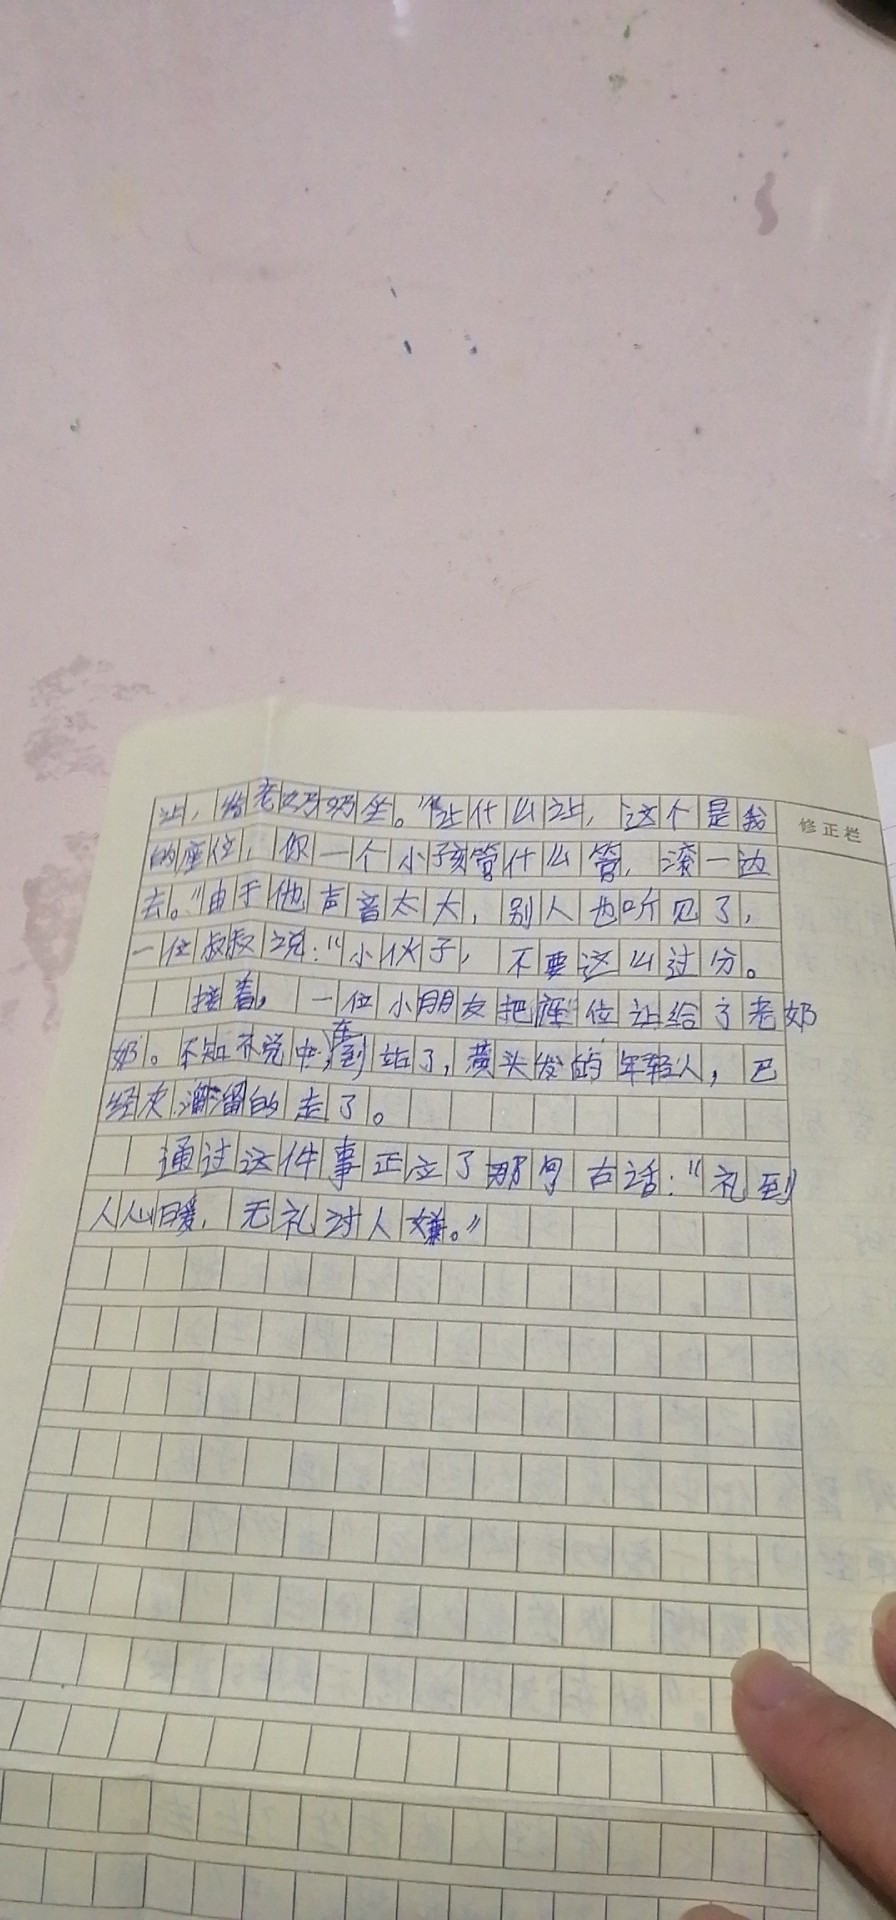 让，给老奶奶坐。“让什么让，这个是我
修正栏
的座位，你一个小孩管什么管，滚一边
去。”由于他声音太大，别人也听见了，
一位叔叔说：“小伙子，不要这么过分。
接着，一位小朋友把座位让给了老奶
奶。不知不觉中，车到站了，黄头发的年轻人，已
经灰溜溜的走了。
通过这件事正应了那句古话：“礼到
人心暖，无礼讨人嫌。”